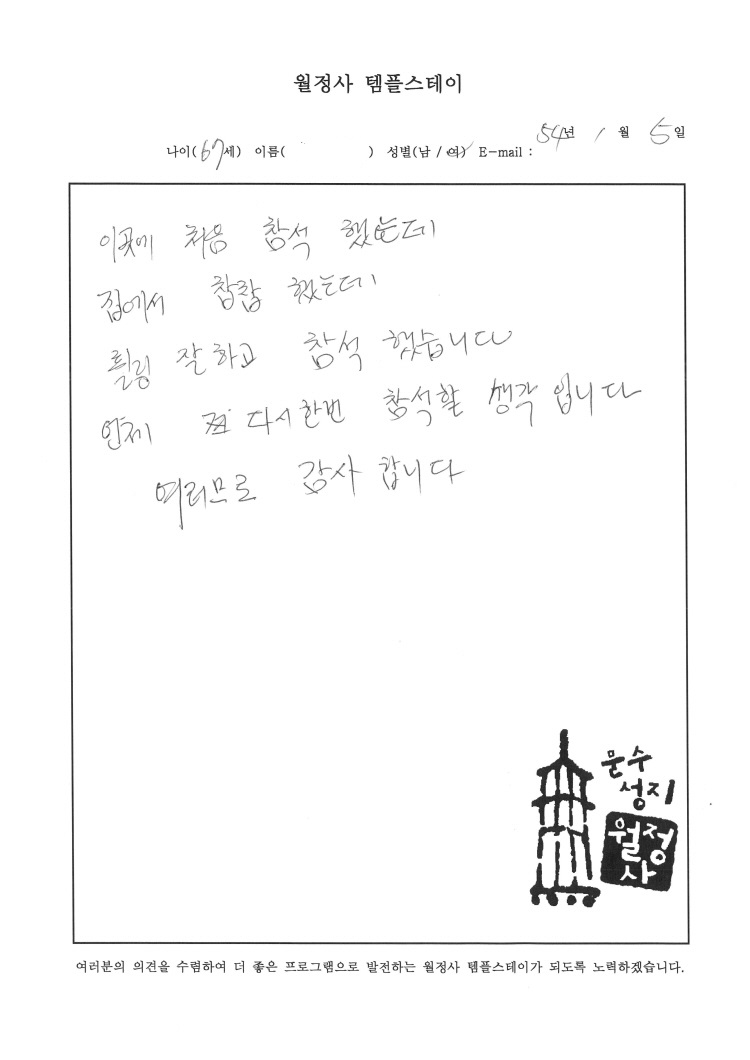 월정사 템플스테이
54년 1월 5일
나이(67세) 이름( ) 성별(남 / 여) E-mail :
이곳에 처음 참석 했는데
집에서 참랍 했는데
힐링 잘하고 참석 했습니다
언제 다시한번 참석할 생각 입니다
여러므로 감사 합니다
문수
성지
월정
사
여러분의 의견을 수렴하여 더 좋은 프로그램으로 발전하는 월정사 템플스테이가 되도록 노력하겠습니다.